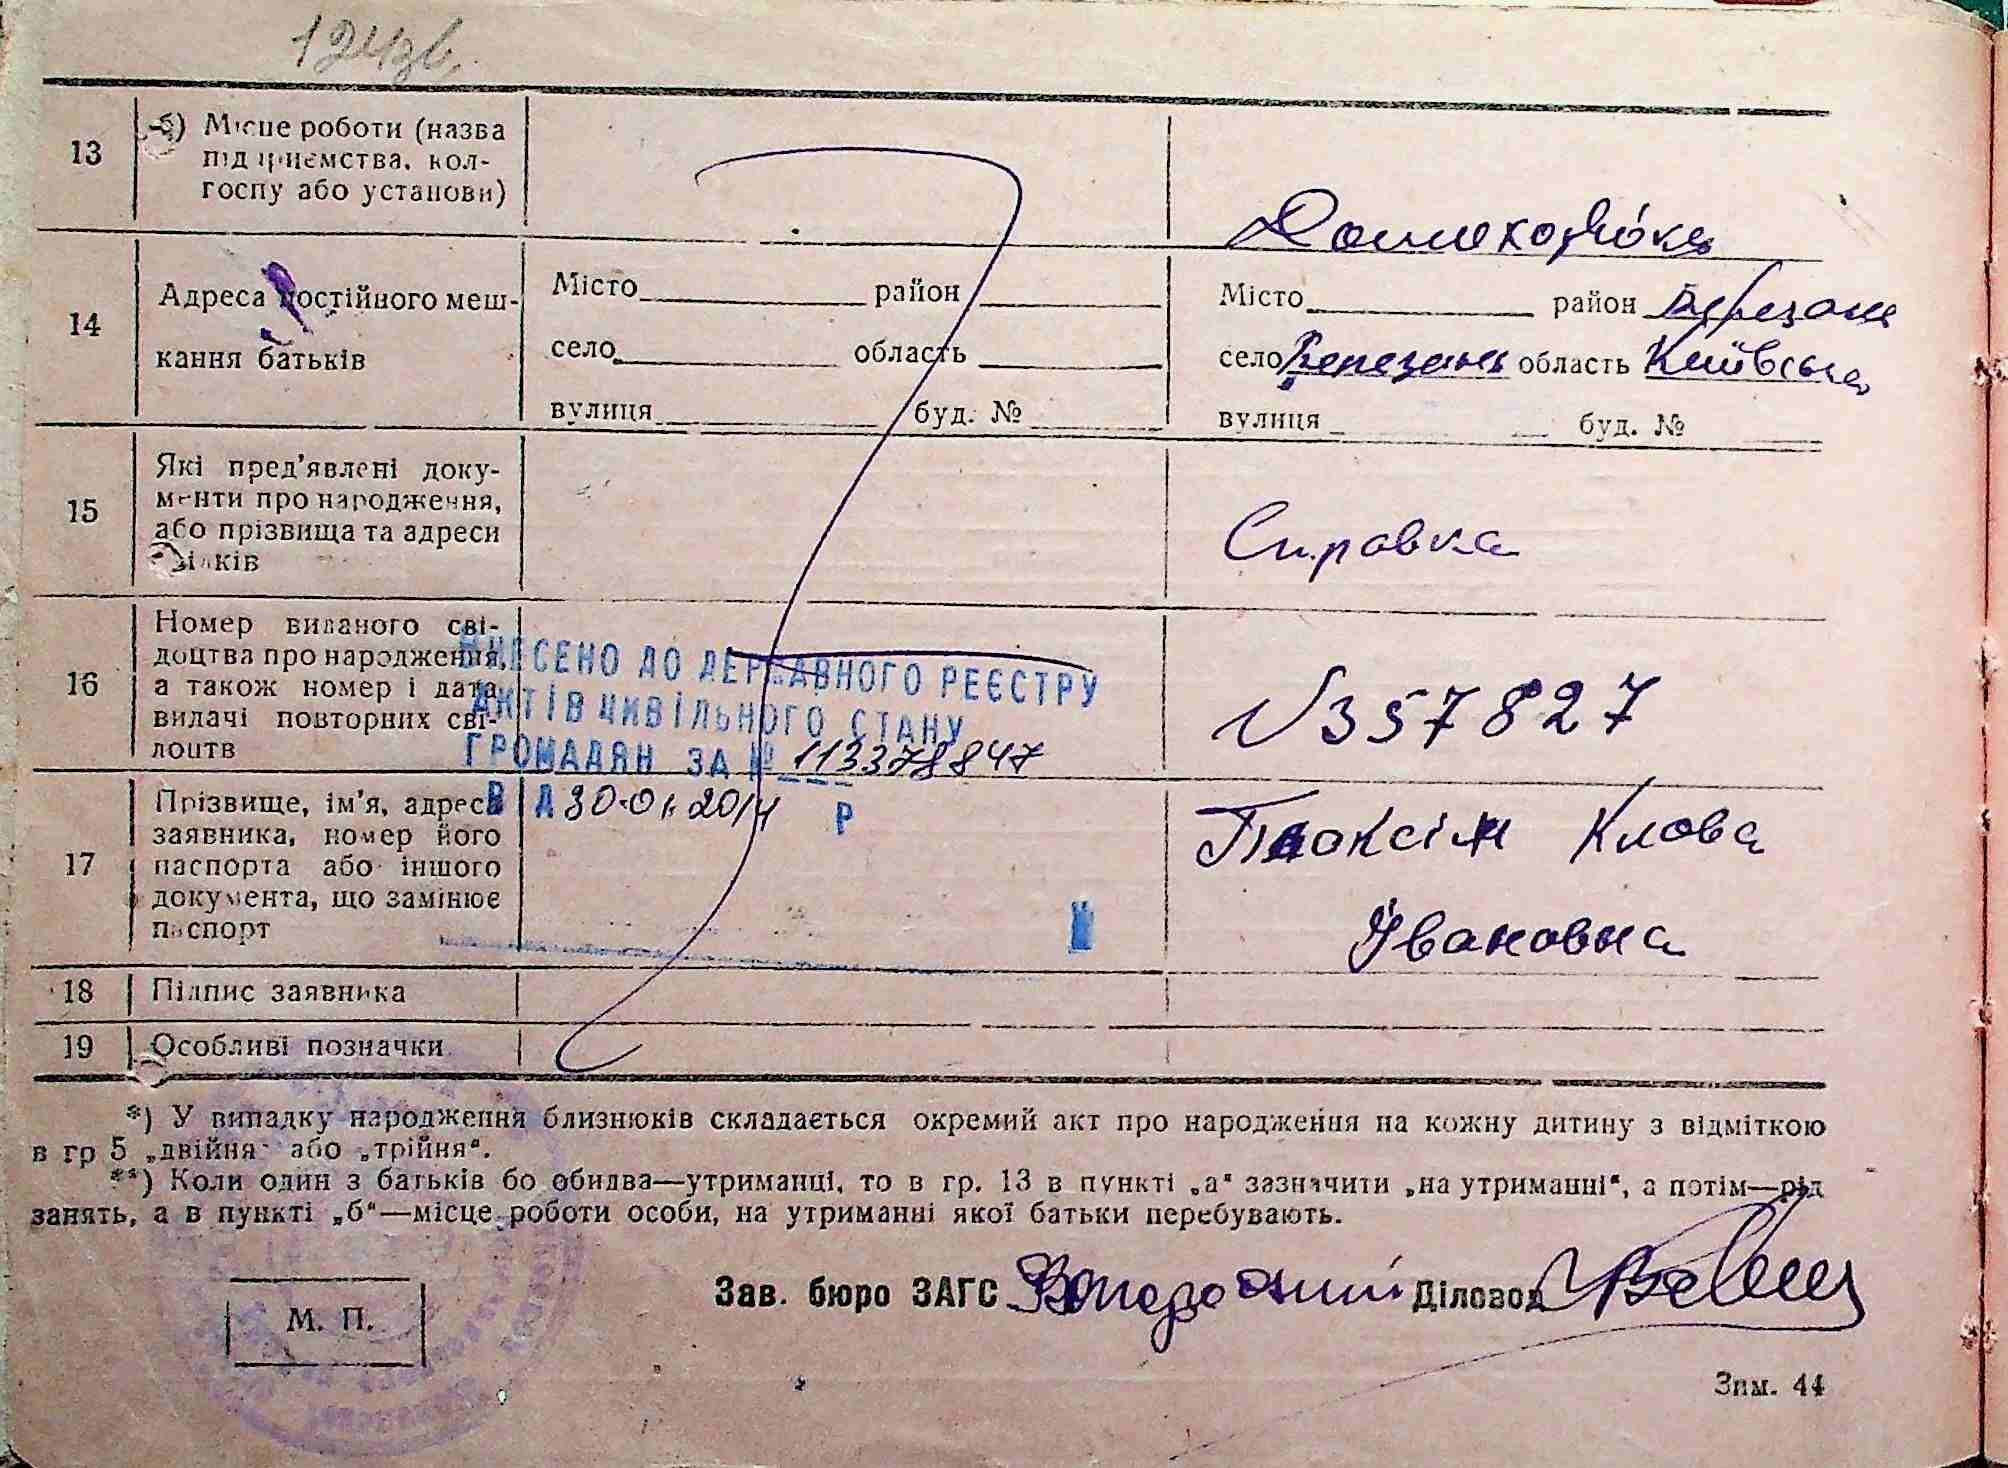 124зв.
13
б) Місце роботи (назва
підприємства, кол-
госпу або установи)
Домохозяйка
14
Адреса постійного меш-
кання батьків
Місто район
село область
вулиця буд. №
Місто район Березань
село Березань область Київська
вулиця буд. №
15
Які пред'явлені доку-
менти про народження,
або прізвища та адреси
свідків
Справка
16
Номер виданого сві-
доцтва про народження,
а також номер і дата
видачі повторних сві-
доцтв
ВНЕСЕНО ДО ДЕРЖАВНОГО РЕЄСТРУ
АКТІВ ЦИВІЛЬНОГО СТАНУ
ГРОМАДЯН ЗА № 113378847
ВІД 30.01.2014 Р
№357827
17
Прізвище, ім'я, адреса
заявника, номер його
паспорта або іншого
документа, що замінює
паспорт
Клова
Івановна
18
Підпис заявника
19
Особливі позначки
*) У випадку народження близнюків складається окремий акт про народження на кожну дитину з відміткою
в гр 5 „двійня" або „трійня".
**) Коли один з батьків бо обидва—утриманці, то в гр. 13 в пункті „а" зазначити „на утриманні", а потім—рід
занять, а в пункті „б"—місце роботи особи, на утриманні якої батьки перебувають.
Зав. бюро ЗАГС Діловод
М. П.
Зпм. 44